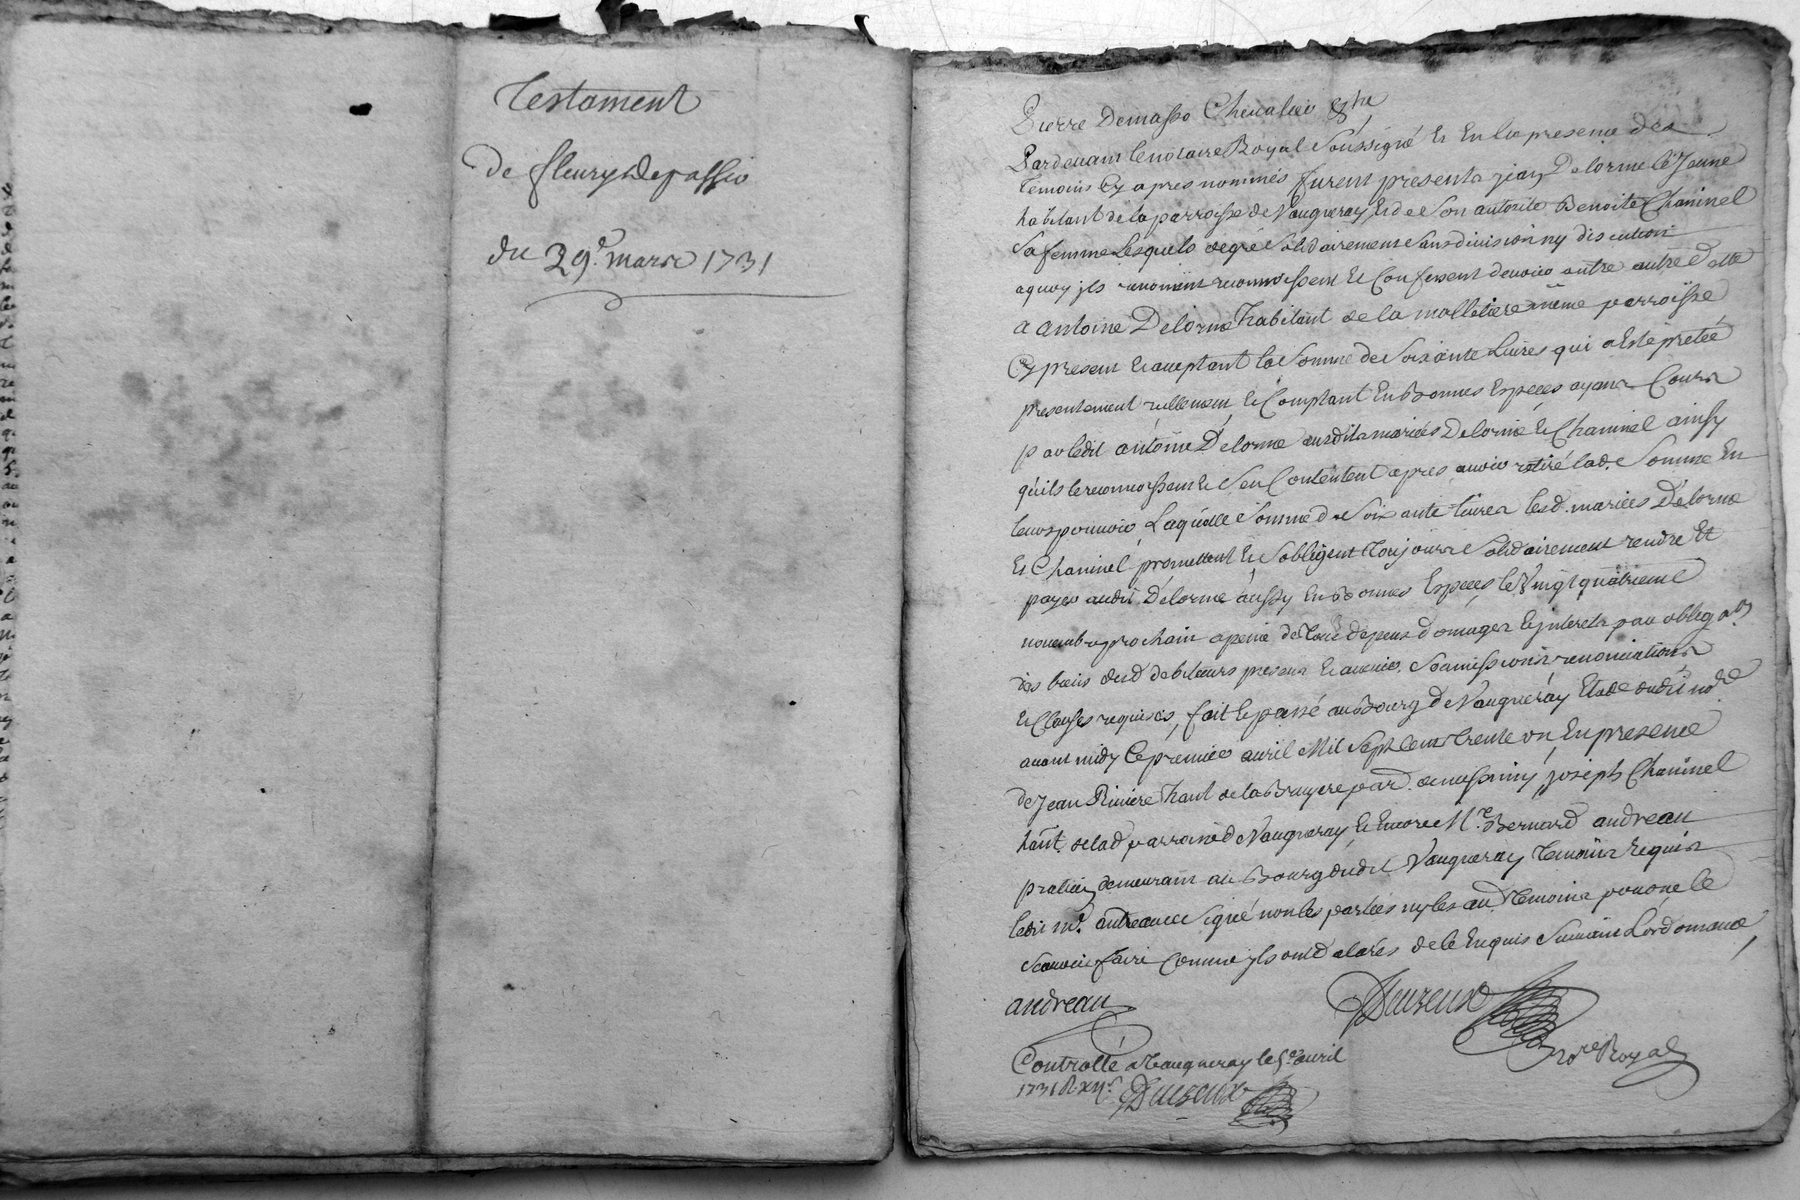 Testament
De fleury Depassio
du 29e. mars 1731
Pierre Demasso Chevalier &tre
Pardevant le notaire Royal Soussigné Et En la presence des
temoins Cy apres nommés furent presents jean Delorme le Jeune
habitant de la parroisse de Vaugneray Et de Son autorité Benoite Chaninel
Sa femme Lesquels de gré Solidairement Sans division ny discution
a quoy ils renoncent reconnoissent Et Confessent devoir autre autre dette
a antoine Delorme habitant de la molletiere même parroisse
Cy present Et aceptant la Somme de Soixante Livres qui a Esté pretée
presentement reellement Et Comptant En Bonnes Especes ayant Cours
par ledit antoine Delorme ausdits mariés Delorme Et Chaninel ainsy
qu'ils le reconnoissent Et S'en Contentent apres avoir retiré lad. Somme En
leur pouvoir Laquelle Somme de Soixante Livres lesd. mariés Delorme
Et Chaninel promettent Et S'obligent toujours Solidairement rendre Et
payer audit Delorme aussy En Bonnes Especes le Vingt quatrieme
novembre prochain a peine de tous depens domages Et interets par obligaon
des biens desd debiteurs presens Et avenir, Soumissions renonciations
Et Clauses requises, fait Et passé au Bourg de Vaugneray Etude dudit nore
avant midy le premier avril Mil Sept Cent trente un En presence
de Jean Riviere hant de la Bruyere par. de messimy, joseph Chaninel
hant. de lad parroisse de Vaugneray Et Encore Me. Bernard andreau
praticien demeurant au Bourg dudit Vaugneray temoins Requis
ledit Me. andreau a Signé non les parties ny les au. temoins pour ne le
Scavoir faire Comme ils ont declarés de ce Enquis Suivant L'ordonnance,
andreau
Duizeux
nore Royal
Controllé a Vaugneray le 5e avril
1731 R. xii s. Duizeux